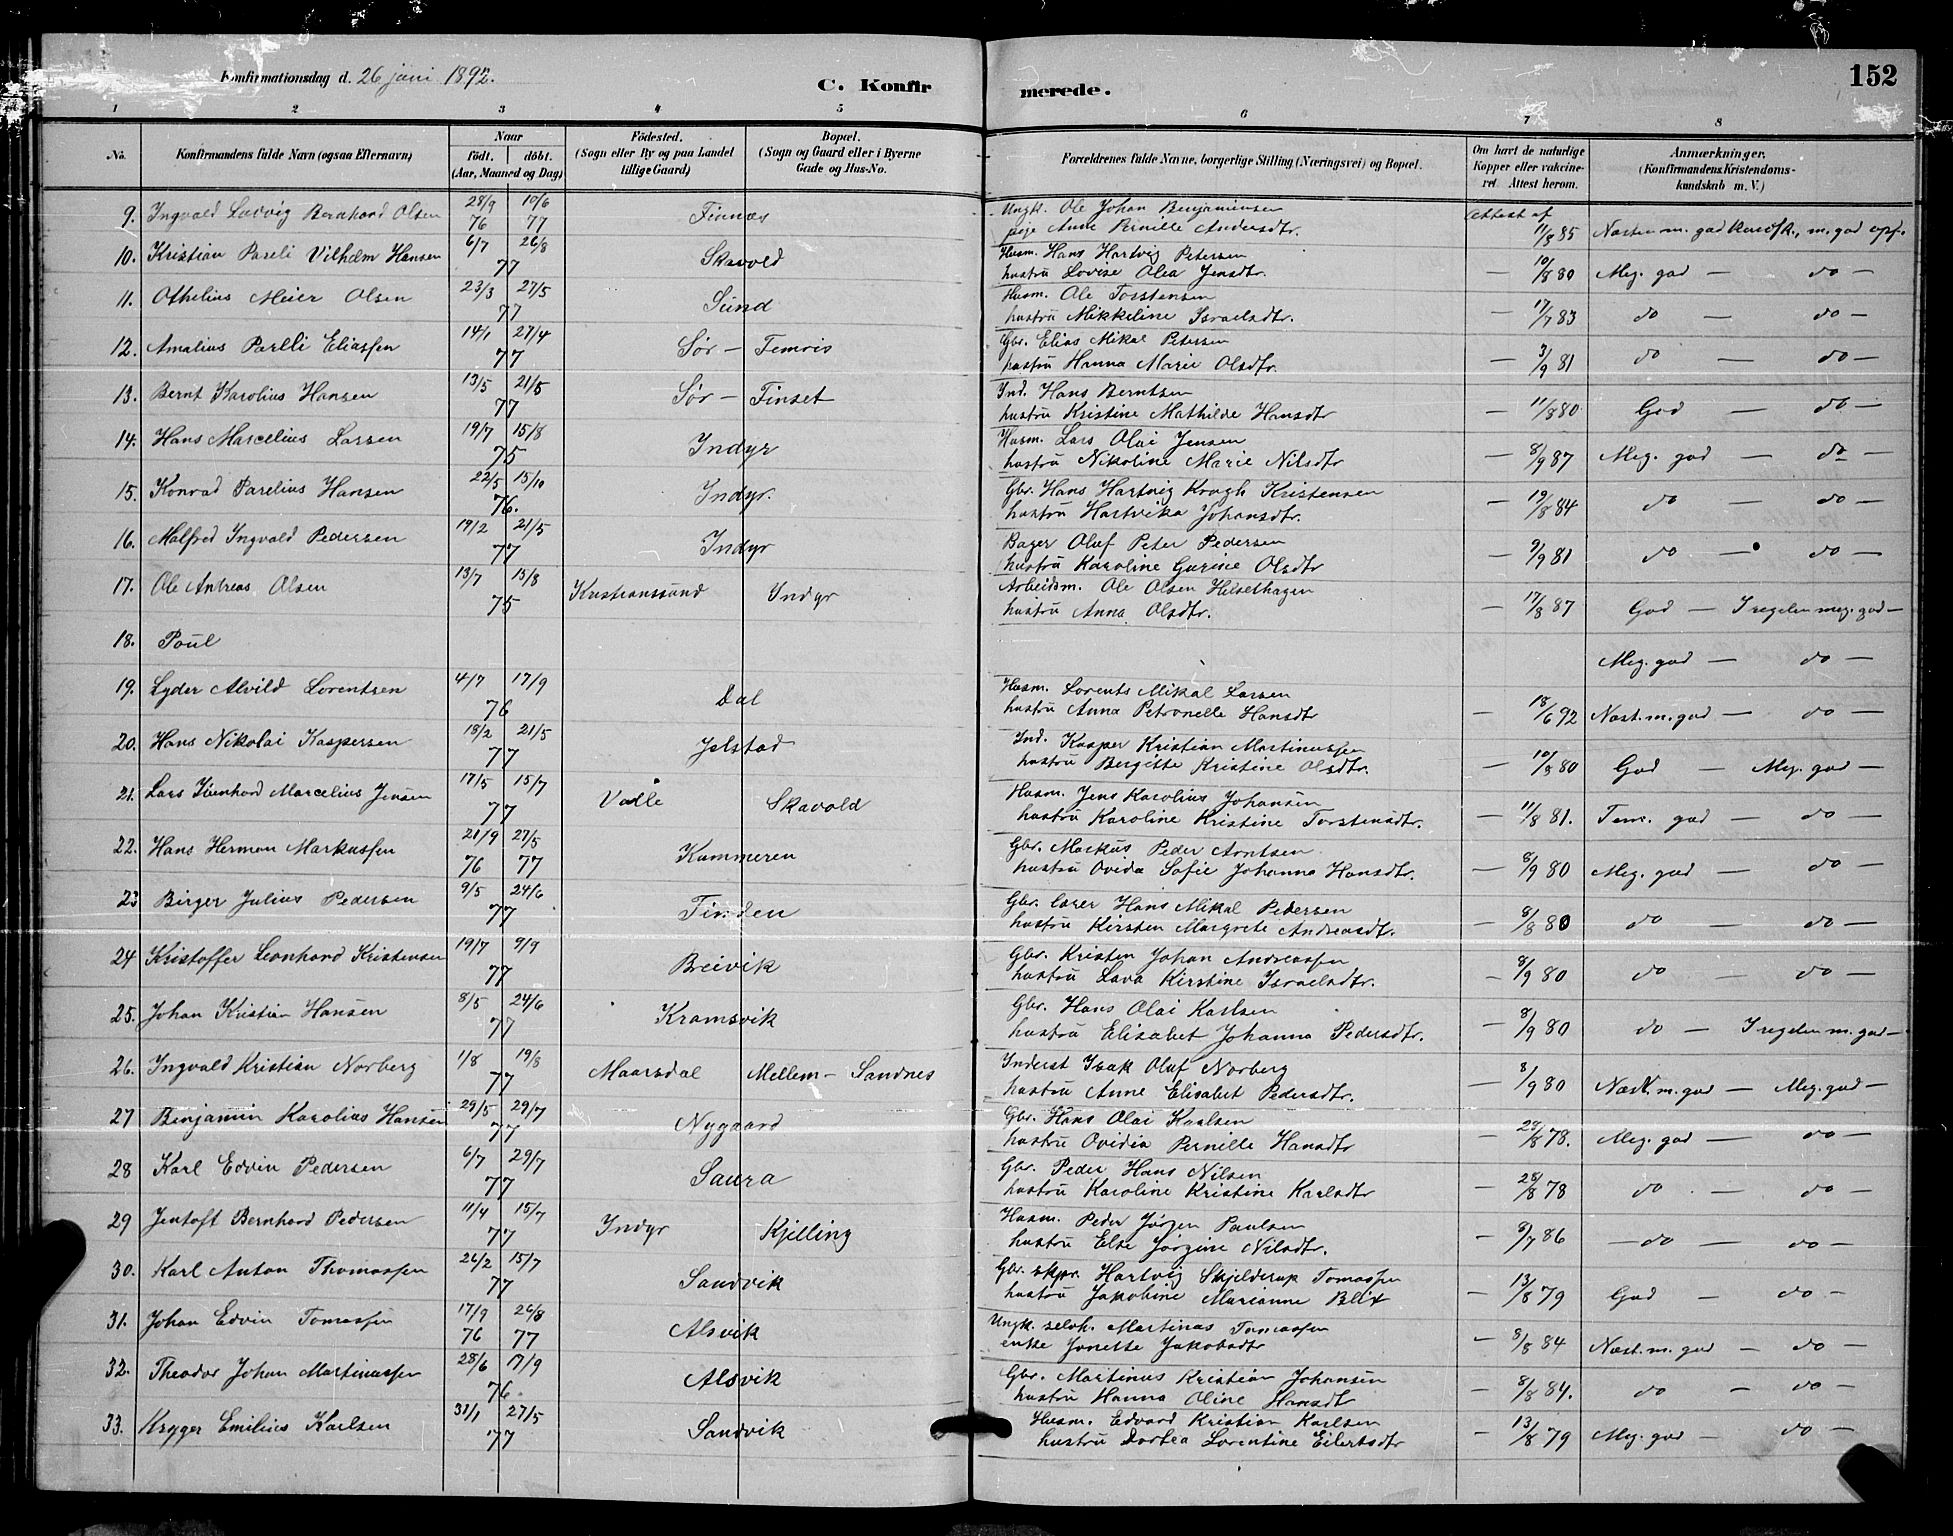 Konfirmationsdag d. 26 juni 1892.
C. Konfirmerede.
152
1 2 3 4 5 6 7 8
No.
Konfirmandens fulde Navn (ogsaa Efternavn)
Naar
födt. döbt.
(Aar, Maaned og Dag)
Födested.
(Sogn eller By og paa Landet
tillige Gaard)
Bopæl.
(Sogn og Gaard eller i Byerne
Gade og Hus-No.
Forældrenes fulde Navne, borgerlige Stilling (Næringsvei) og Bopæl.
Om havt de naturlige
Kopper eller vakcine-
ret. Attest herom.
Anmærkninger.
(Konfirmandens Kristendoms-
kundskab m. V.)
9. Ingvald Ludvig Bernhard Olsen 28/9 76 10/6 77 Finnæs
Ungk. Ole Johan Benjaminsen
pige Anne Pernille Andersdtr. Attest af 11/8 85 Næsten m. god kundsk., m. god opf.
10. Kristian Pareli Vilhelm Hansen 6/7 26/8 77 Skavold
Husm. Hans Hartvig Petersen
hustru Lovise Olea Jensdtr. — 10/8 80 Meg. god — do —
11. Othelius Meier Olsen 23/3 27/5 77 Sund
Husm. Ole Torstensen
hustru Mikkeline Israelsdtr. — 17/7 83 do — do —
12. Amalius Parelli Eliassen 14/1 27/4 77 Sør-Femris
Gbr. Elias Mikal Petersen
hustru Hanna Marie Olsdtr. — 3/9 81 do — do —
13. Bernt Karolius Hansen 13/5 21/5 77 Sør-Finset
Ind. Hans Berntsen
hustru Kristine Mathilde Hansdtr — 11/8 80 God — do —
14. Hans Marcelius Larsen 19/7 15/8 75 Indyr
Husm. Lars Olai Jensen
hustru Nikoline Marie Nilsdtr — 8/9 87 Meg. god — do —
15. Konrad Parelius Hansen 22/5 15/10 76. Indyr.
Gbr. Hans Hartvig Krogh Kristensen
hustru Hartvika Johansdtr. — 19/8 84 do — do —
16. Malfred Ingvald Pedersen 19/2 21/5 77 Indyr
Bager Oluf Peter Pedersen
hustru Karoline Gurine Olsdtr — 9/9 81 do — do —
17. Ole Andreas Olsen 13/7 15/8 75 Kristianssund Indyr
Arbeidsm. Ole Olsen Helsethagen
hustru Anna Olsdtr. — 17/8 87 God — I regelen meg. god —
18. Poul
Meg. god — do —
19. Lyder Alvild Lorentsen 4/7 17/9 76 Dal
Husm. Lorents Mikal Larsen
hustru Anna Petronelle Hansdtr — 18/6 92 Næst. m. god — do —
20. Hans Nikolai Kaspersen 18/2 21/5 77 Jelstad
Ind. Kasper Kristian Martinussen
hustru Bergitte Kristine Olsdtr. — 10/8 80 God — Meg. god —
21. Lars Marcelius Jensen 17/5 15/7 77 Valle Skavold
Husm. Jens Karolius Johansen
hustru Karoline Kristine Torstensdtr. — 11/8 81. Tem. god — do —
22. Hans Herman Markussen 21/9 76 27/5 77 Kummeren
Gbr. Markus Peder Arntsen
hustru Ovida Sofie Johanna Hansdtr. — 8/9 80 Meg. god — do —
23 Birger Julius Pedersen 9/5 24/6 77 Tinden
Gbr. lærer Hans Mikal Pedersen
hustru Kirsten Margrete Andreasdtr. — 8/8 80 do — do —
24 Kristoffer Leonhard Kristensen 19/7 9/9 77 Breivik
Gbr. Kristen Johan Andreassen
hustru Lava Kirstine Israelsdtr. — 8/9 80 do — do —
25. Johan Kristian Hansen 8/5 24/6 77 Kramsvik
Gbr. Hans Olai Karlsen
hustru Elisabet Johanna Pedersdtr. — 8/9 80 do — I regelen m. god —
26. Ingvald Kristian Norberg 1/8 19/8 77 Maarsdal Mellem-Sandnes
Inderst Isak Oluf Norberg
hustru Anne Elisabet Pedersdtr. — 8/9 80 Næst. m. god — Meg. god —
27 Benjamin Karolius Hansen 29/5 29/7 77 Nygaard
Gbr. Hans Olai Karlsen
hustru Ovidia Pernille Hansdtr — 28/8 78. Meg. god — do —
28 Karl Edvin Pedersen 6/7 29/7 77 Saura
Gbr. Peder Hans Nilsen
hustru Karoline Kristine Karlsdtr — 28/8 78 do — do —
29 Jentoft Bernhard Pedersen 11/4 15/7 77 Indyr Kjelling
Husm. Peder Jørgen Paulsen
hustru Else Jørgine Nilsdtr. — 9/7 86 — do — do —
30. Karl Anton Thomassen 26/2 15/7 77 Sandvik
Gbr. skpr. Hartvig Skjelderup Tomassen
hustru Jakobine Marianne Blix — 13/8 79 God — do —
31. Johan Edvin Tomassen 17/9 76 26/8 77 Alsvik
Ungk. selvh. Martinus Tomassen
enke Jonette Jakobsdtr — 8/8 84 Næst. m. god — do —
32. Theodor Johan Martinussen 28/6 17/9 76. Alsvik
Gbr. Martinus Kristian Johansen
hustru Hanna Oline Hansdtr — 8/8 84. do — do —
33. Kryger Emilius Karlsen 31/1 27/5 77 Sandvik
Husm. Edvard Kristian Karlsen
hustru Dortea Lorentine Eilertsdtr — 13/8 79 Meg. god — do —